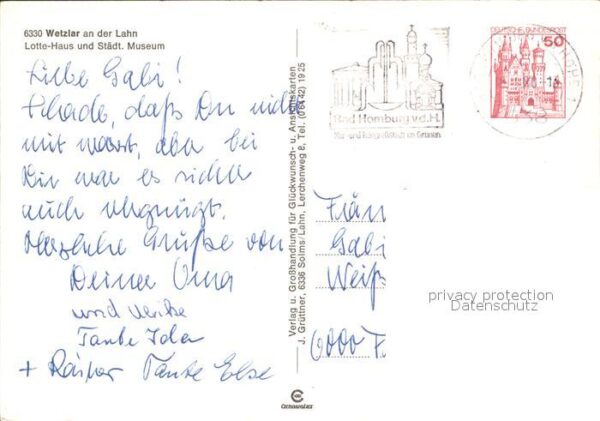 6330 Wetzlar an der Lahn
Lotte-Haus und Städt. Museum
Liebe Gabi!
Schade, daß Du nicht
mit warst, aber bei
Dir war es sicher
auch vergnügt.
Herzliche Grüße von
Deiner Oma
und
Tante Ida
+ Rainer Tante Else
Verlag u. Großhandlung für Glückwunsch- u. Ansichtskarten
J. Grüttner, 6336 Solms/Lahn, Lerchenweg 8, Tel. (06442) 1925
Bad Homburg v.d.H.
DEUTSCHE BUNDESPOST
50
Gabi
Weiß
6000 F.
privacy protection
Datenschutz